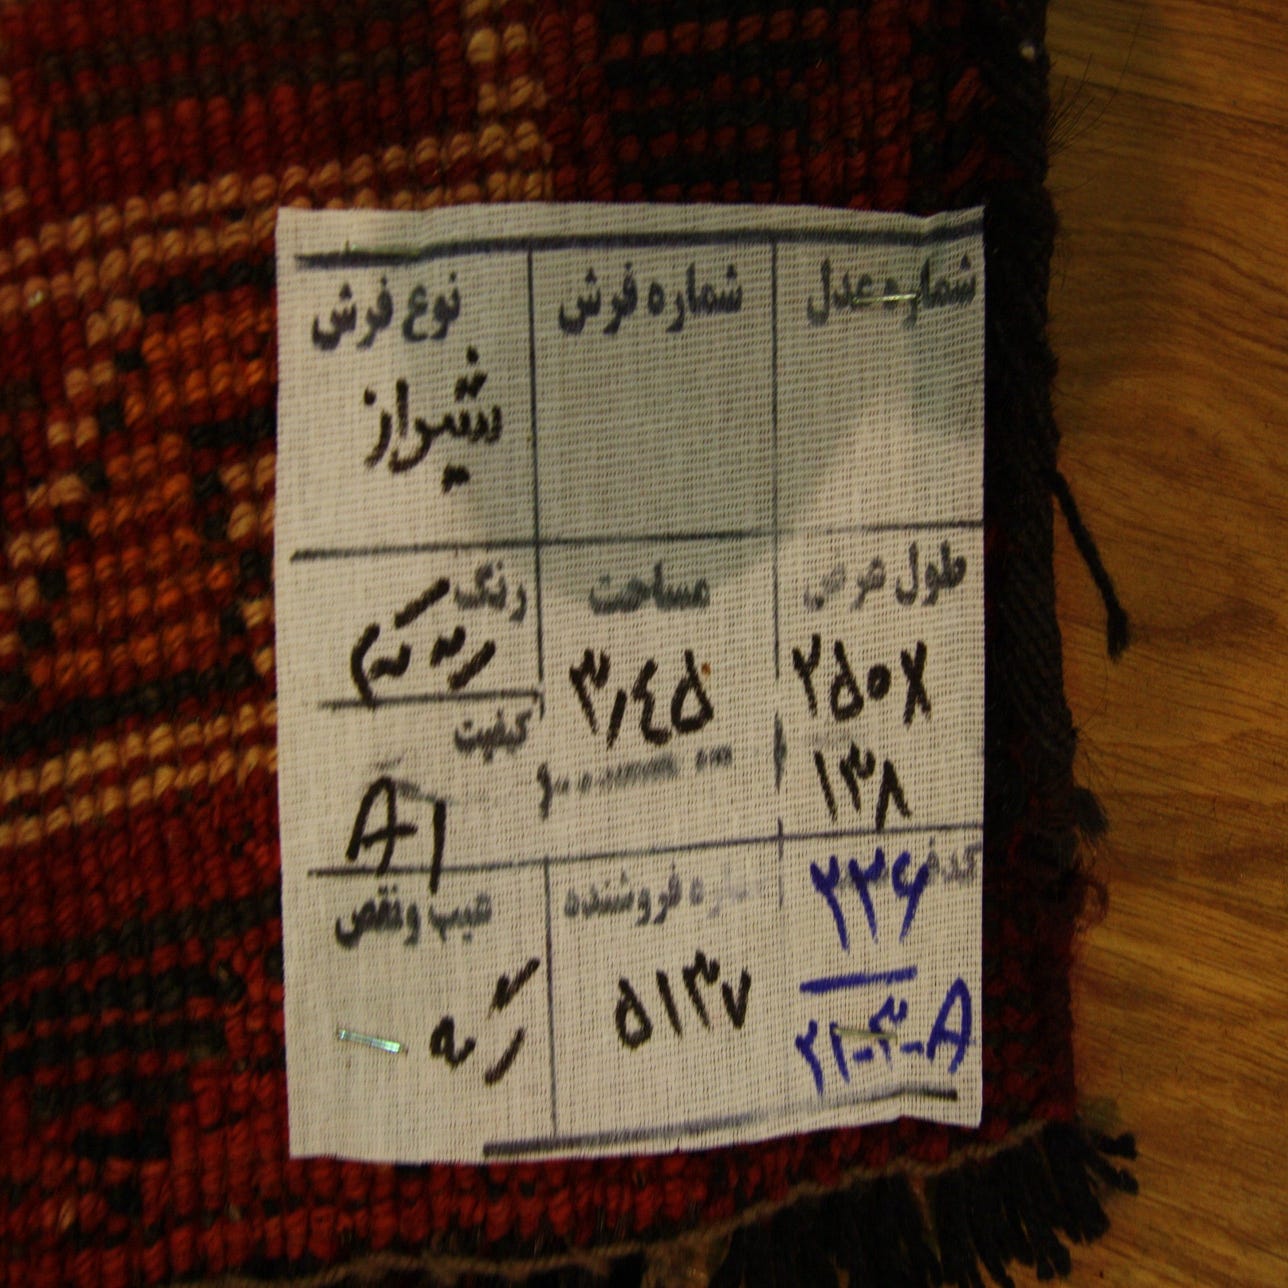 شماره عدل
شماره فرش
نوع فرش
شیراز
طول عرض
۲۵۰X
۱۳۸
مساحت
۳٫۴۵
رنگ
کیفیت
A1
۲۳۶
۲۱-۳-A
شماره فروشنده
۵۱۳۷
عیب و نقص